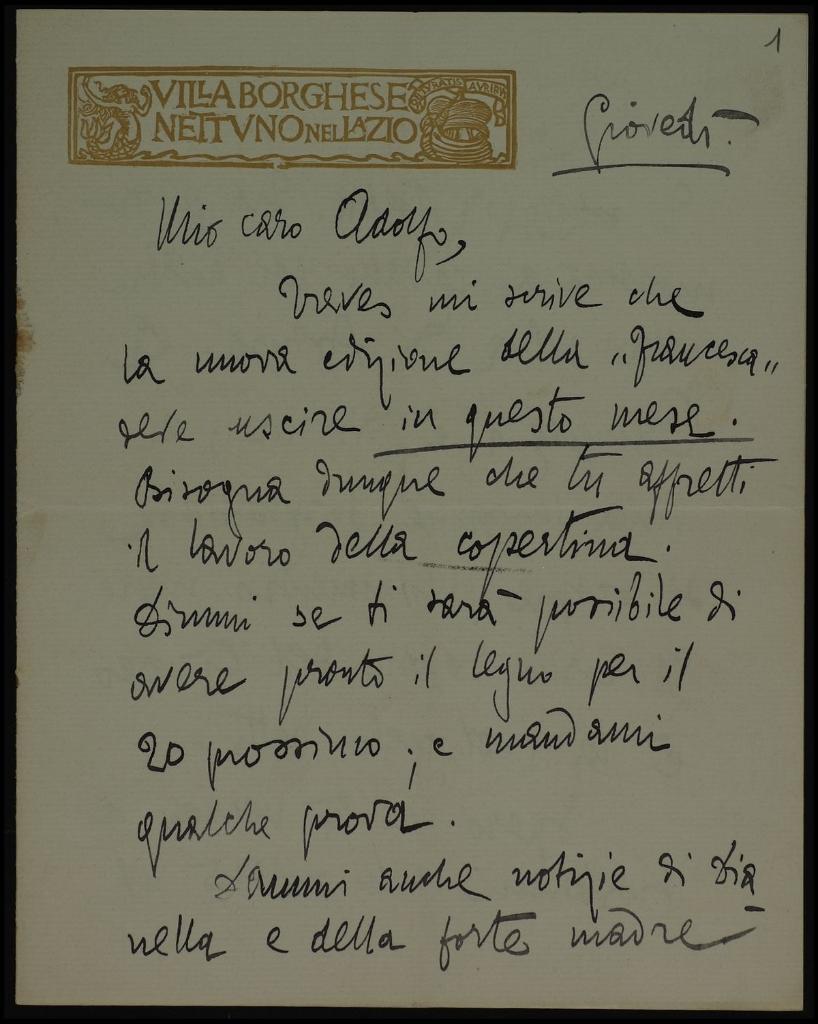 1
VILLA BORGHESE
NETTVNO NEL LAZIO
Giovedì.
Mio caro Adolfo,
Treves mi scrive che
la nuova edizione della „Francesca„
deve uscire in questo mese.
Bisogna dunque che tu affretti
il lavoro della copertina.
Dimmi se ti sarà possibile di
avere pronto il legno per il
20 prossimo; e mandami
qualche prova.
Dammi anche notizie di Dia
nella e della forte madre